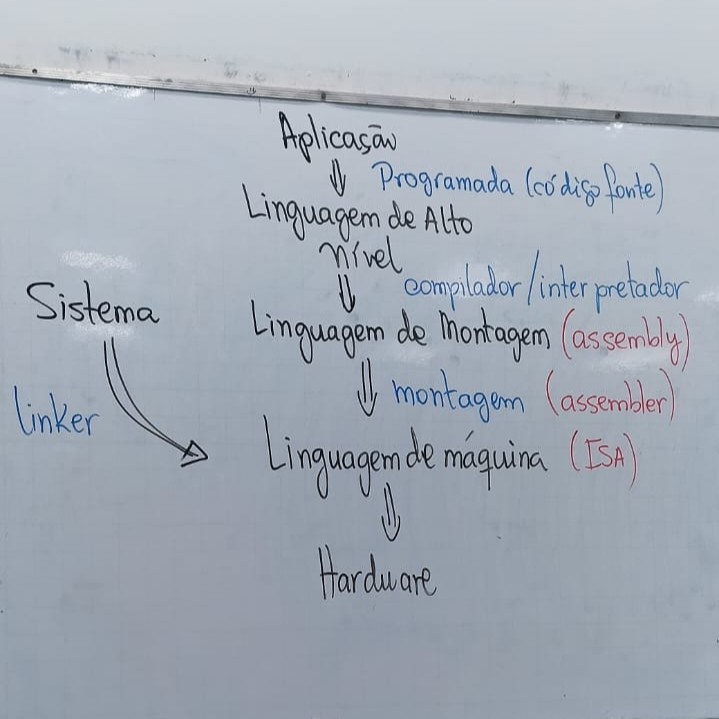 Aplicação
Programada (código fonte)
Linguagem de Alto
nível
compilador/interpretador
Sistema
Linguagem de Montagem (assembly)
montagem (assembler)
linker
Linguagem de máquina (ISA)
Hardware